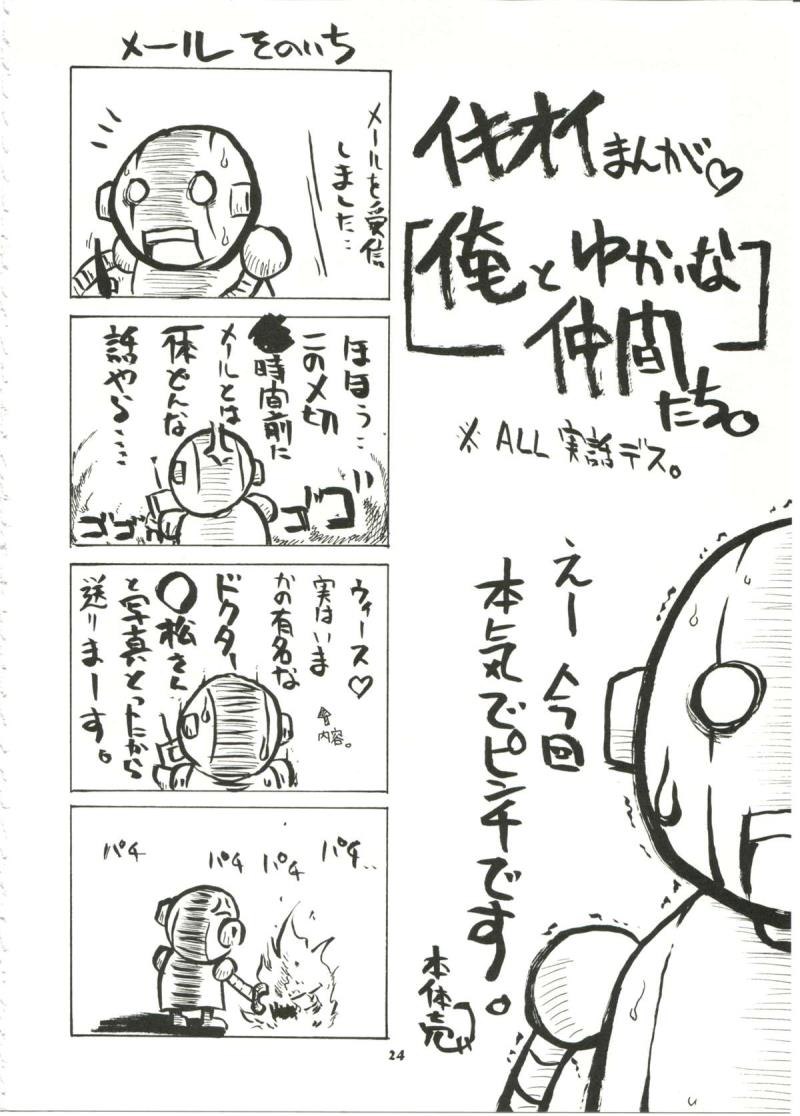 イキオイまんが♡
「俺とゆかいな
仲間たち。」
※ALL 実話デス。
えー今回
本気でピンチです。
メール そのいち
メールを受信
しました…
ほほう…
この〆切
時間前に
メールとは
一体どんな
話やら……
ゴゴゴ
ゴゴ
ウィース♡
実はいま
かの有名な
ドクター
〇松さん
と写真とったから
送りまーす。
内容。
パチ
パチ
パチ
パチ..
24